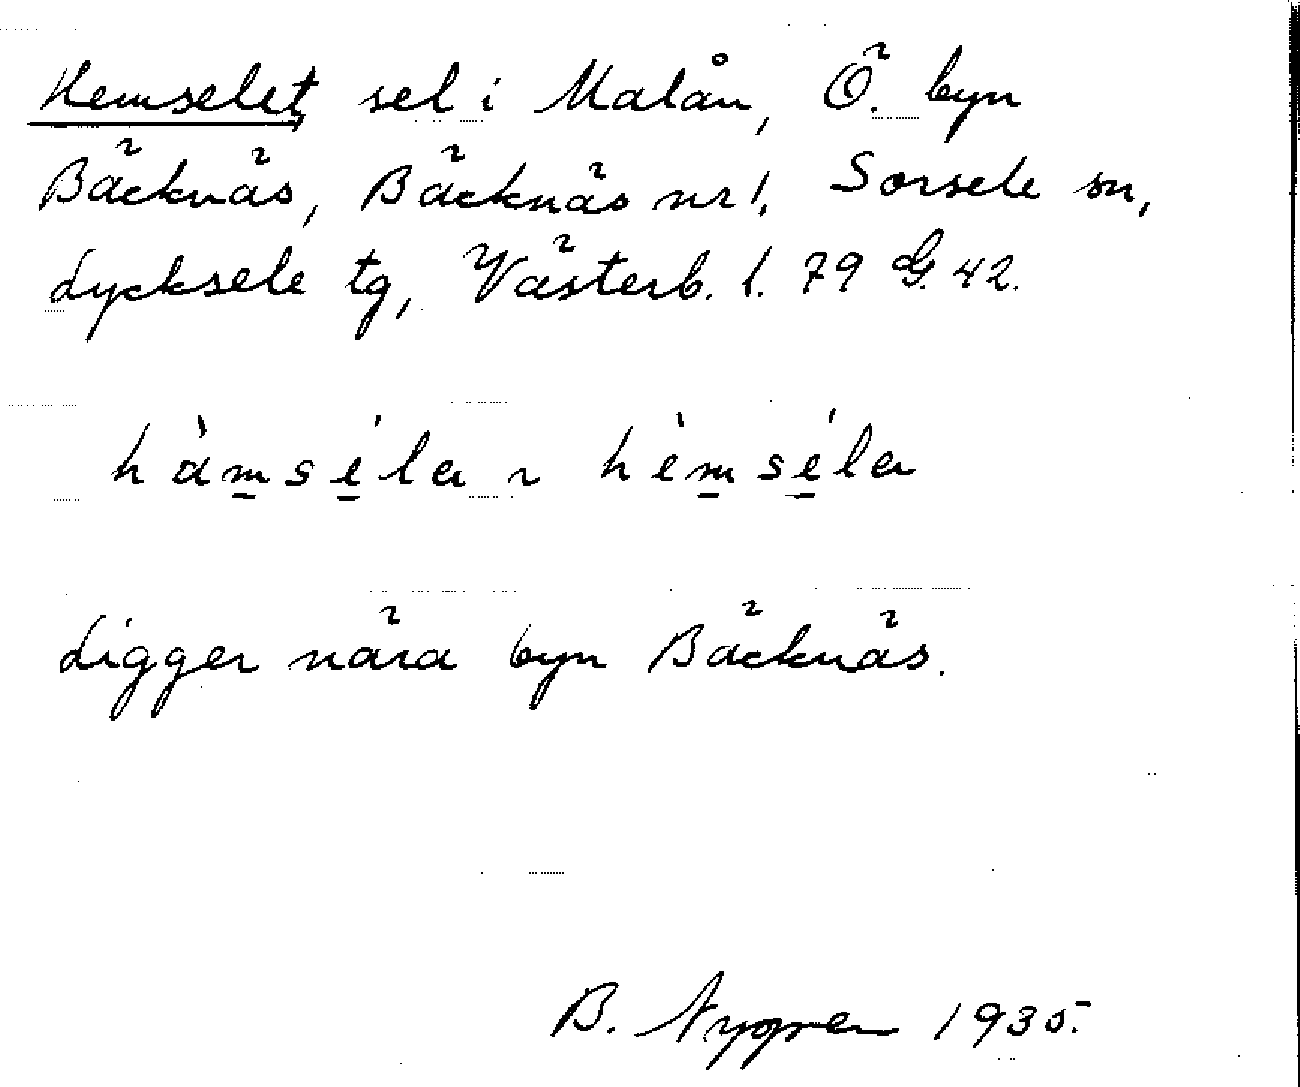 Hemselet, sel i Malån, Ö. byn
Bäcknäs, Bäcknäs nr 1, Sorsele sn,
Lycksele tg, Västerb. l. 79 G. 42.
hàmsélɐ ~ hèmsélɐ
Ligger nära byn Bäcknäs.
B. Nygren 1935.